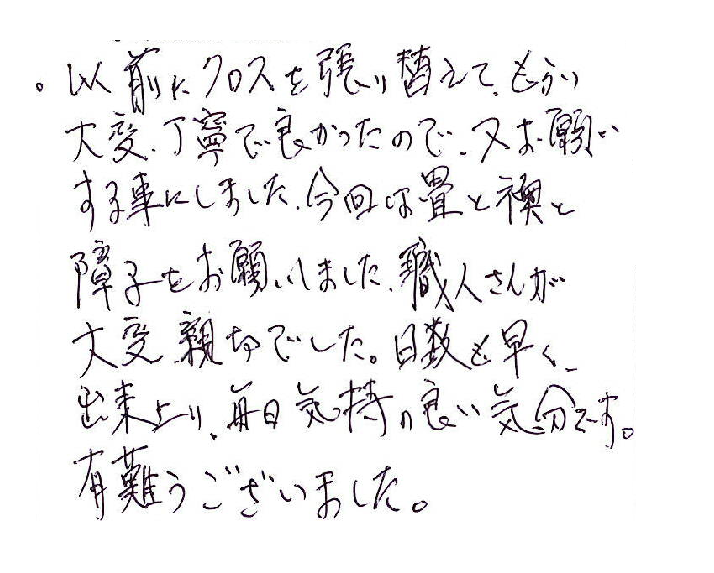 。以前にクロスを張り替えて、もらい
大変、丁寧で良かったので、又お願い
する事にしました、今回は畳と襖と
障子をお願いしました、職人さんが
大変親切でした。日数も早く、
出来上り、毎日気持の良い気分です。
有難うございました。